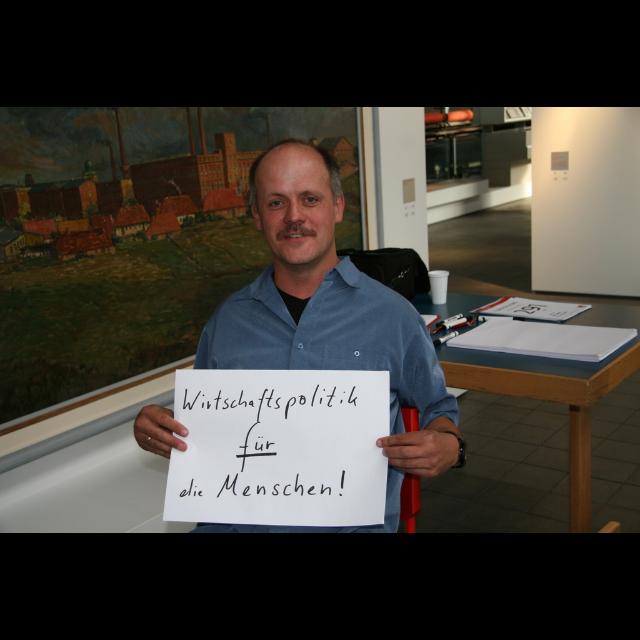 Wirtschaftspolitik
für
die Menschen!